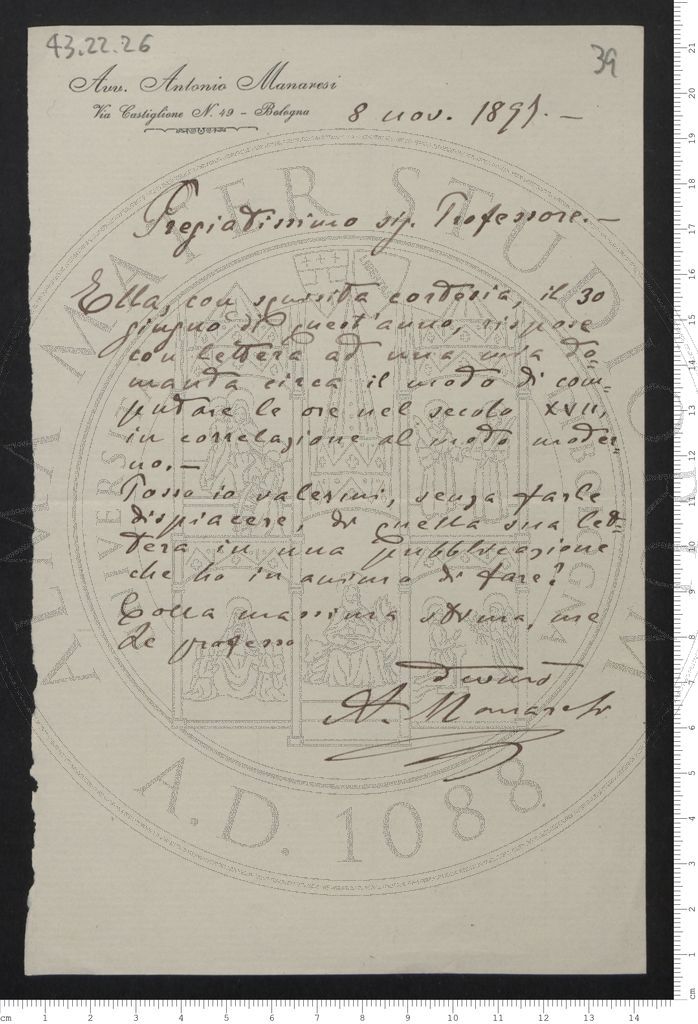 43.22.26
39
Avv. Antonio Manaresi
Via Castiglione N. 49 - Bologna
8 nov. 1897. —
Pregiatissimo sig. Professore. —
Ella, con squisita cortesia, il 30
giugno di quest'anno, rispose
con lettera ad una mia do=
manda circa il modo di com=
putare le ore nel secolo XVII,
in correlazione al modo moder=
no. —
Posso io valermi, senza farle
dispiacere, di quella sua let=
tera in una pubblicazione
che ho in animo di fare?
Colla massima stima, me
Le professo
A. Manaresi
ALMA MATER STUDIORUM
A.D. 1088